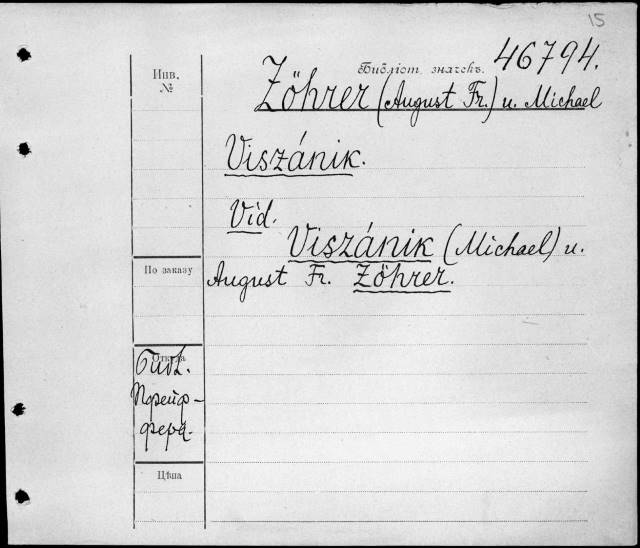 15
Инв.
№
Библіот. значекъ. 46794.
Zöhrer (August Fr.) u. Michael
Viszánik.
Vid.
Viszánik (Michael) u.
По заказу
August Fr. Zöhrer.
Откуда
Библ.
Пфейф-
фера.
Цѣна